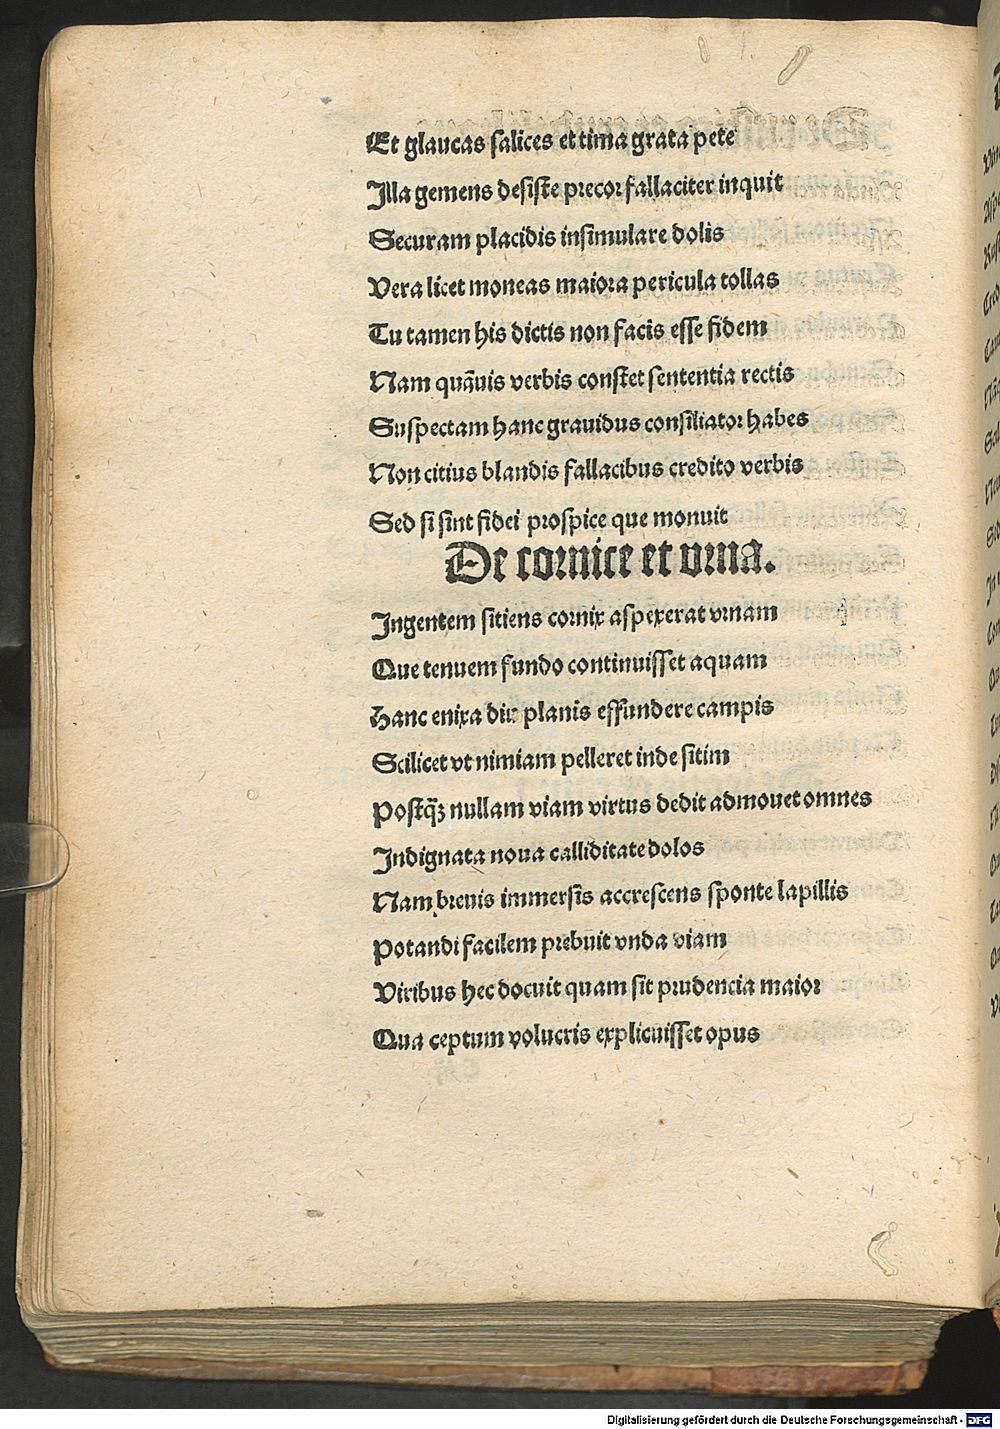 Et glaucas salices et tima grata pete
Illa gemens desiste precor fallaciter inquit
Securam placidis insimulare dolis
Vera licet moneas maiora pericula tollas
Tu tamen his dictis non facis esse fidem
Nam quāuis verbis constet sententia rectis
Suspectam hanc grauidus consiliator habes
Non citius blandis fallacibus credito verbis
Sed si sint fidei prospice que monuit
De cornice et vrna.
Ingentem sitiens cornix aspexerat vrnam
Que tenuem fundo continuisset aquam
Hanc enixa diu planis effundere campis
Scilicet vt nimiam pelleret inde sitim
Postꝙ̄ nullam viam virtus dedit admouet omnes
Indignata noua calliditate dolos
Nam breuis immersis accrescens sponte lapillis
Potandi facilem prebuit vnda viam
Viribus hec docuit quam sit prudencia maior
Qua ceptum volucris explicuisset opus
Digitalisierung gefördert durch die Deutsche Forschungsgemeinschaft - DFG